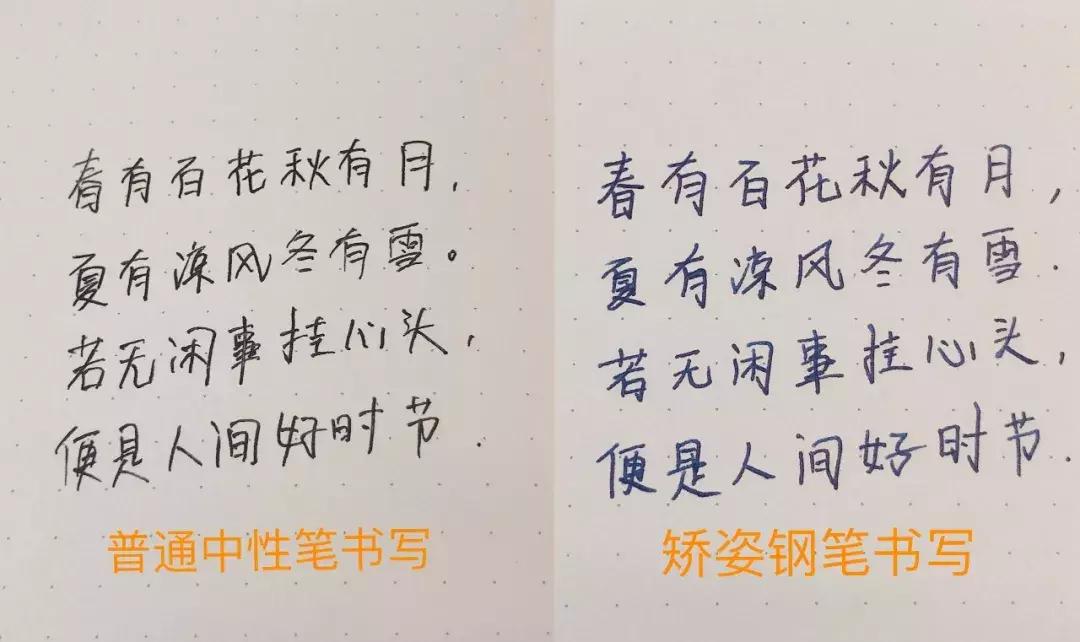 春有百花秋有月,
夏有凉风冬有雪。
若无闲事挂心头,
便是人间好时节.
普通中性笔书写
春有百花秋有月,
夏有凉风冬有雪.
若无闲事挂心头,
便是人间好时节.
矫姿钢笔书写